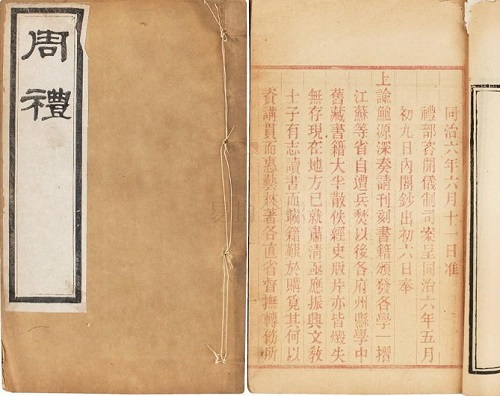 周禮
同治六年六月十一日准
禮部咨開儀制司案呈同治六年五月
初九日內閣鈔出初六日奉
上諭鮑源深奏請刊刻書籍頒發各學一摺
江蘇等省自遭兵燹以後各府州縣學中
舊藏書籍大半散佚經史版片亦皆燬失
無存現在地方已就肅清亟應振興文敎
士子有志讀書而載籍難於購覓其何以
資講貫而惠藝林著各直省督撫轉飭所